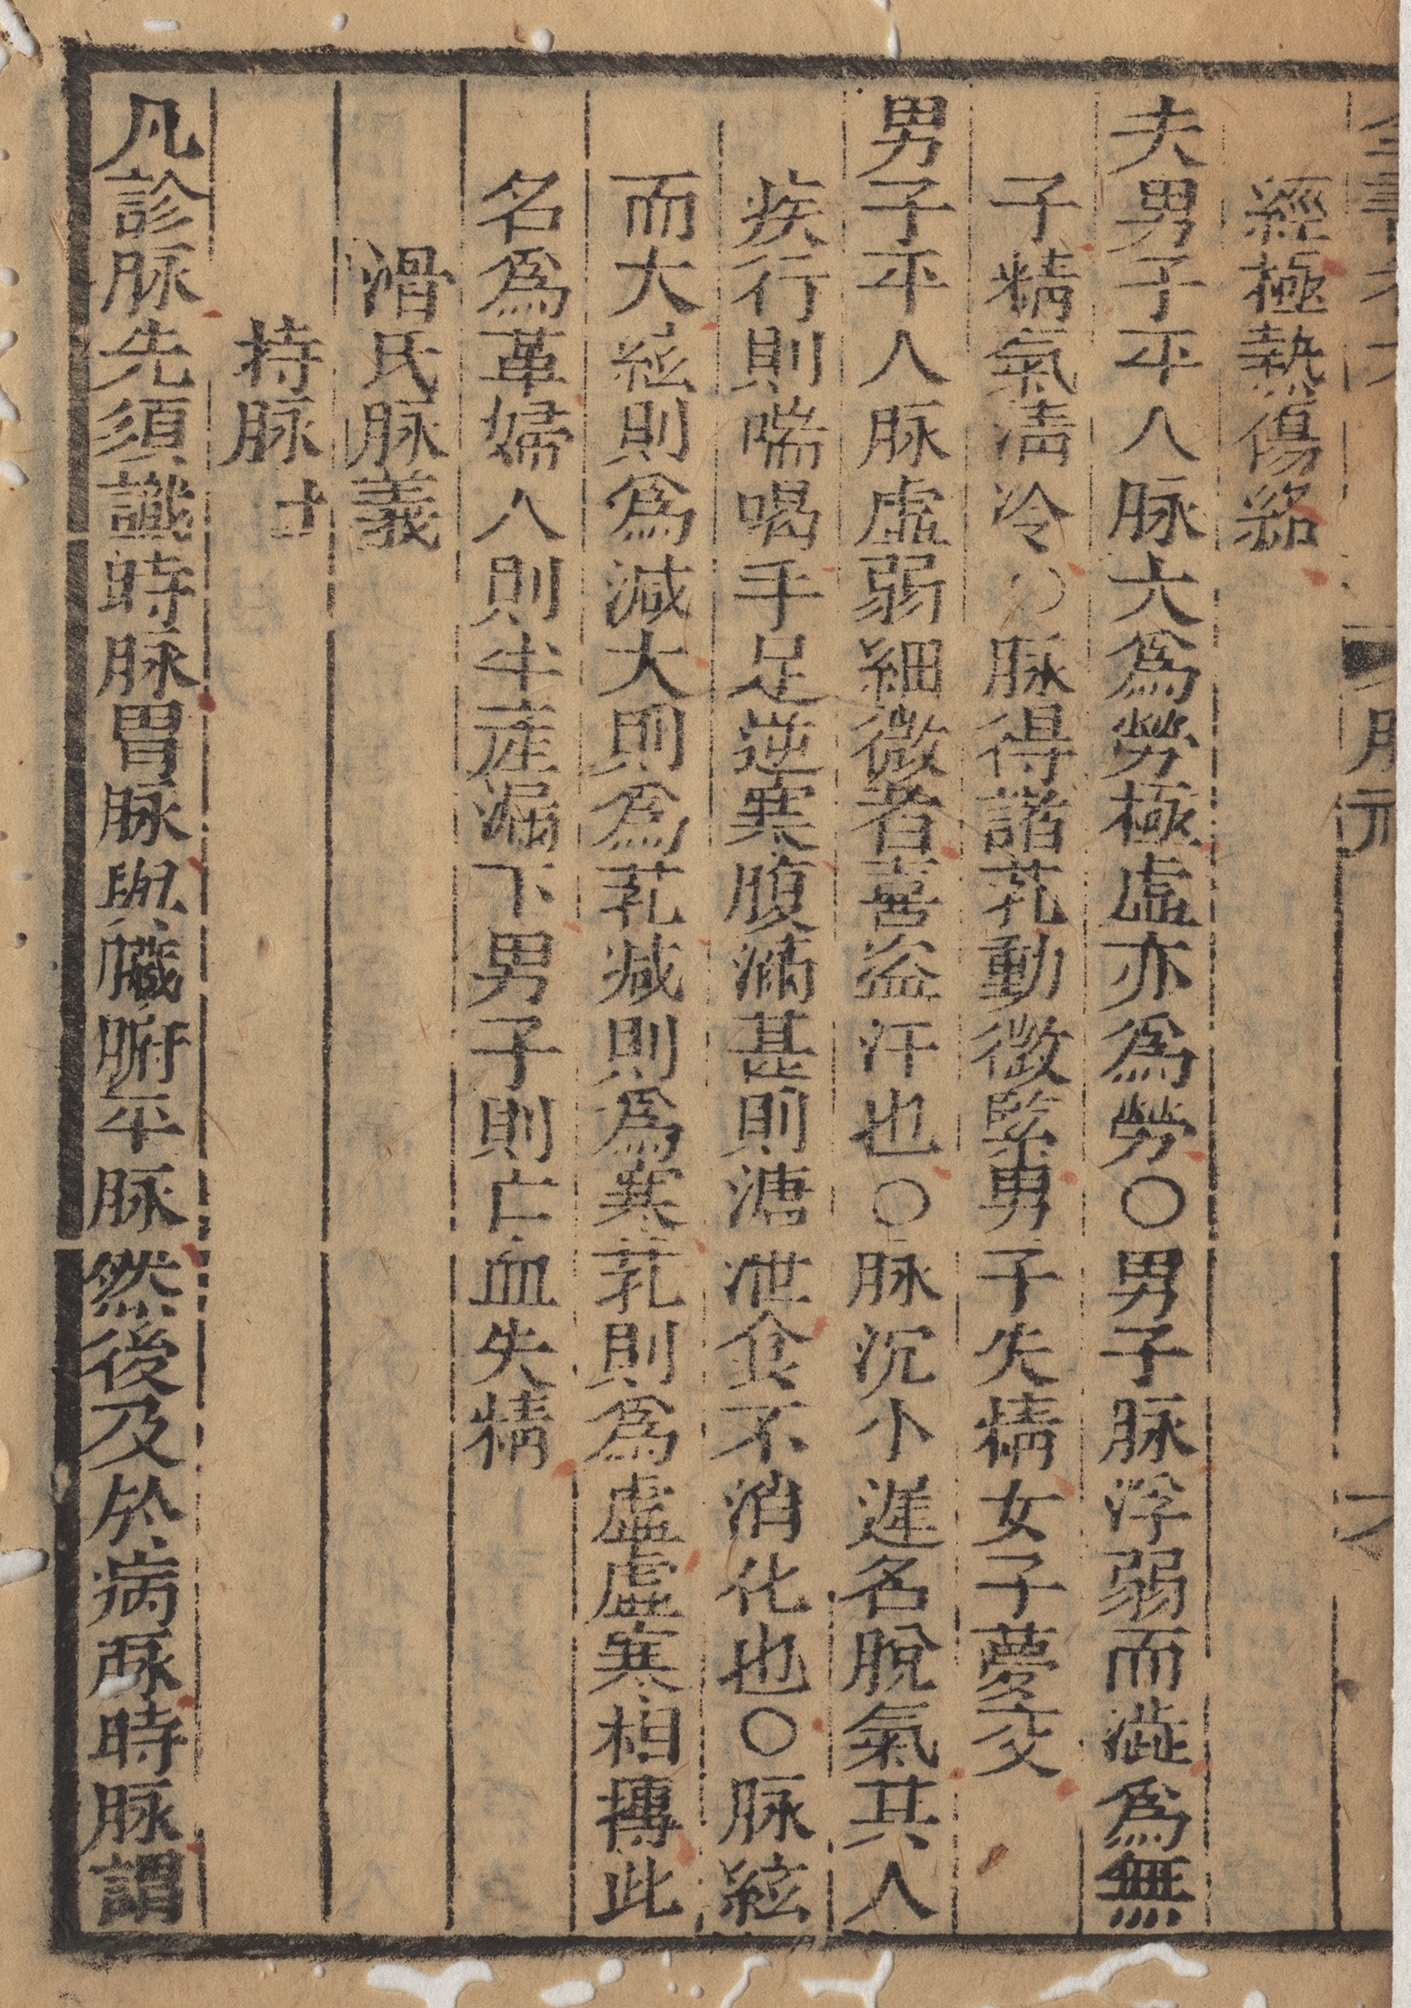 經極熱傷絡
夫男子平人脉大爲勞極虛亦爲勞○男子脉浮弱而澁爲無
子精氣淸冷○脉得諸芤動微緊男子失精女子夢交
男子平人脉虛弱細微者喜盗汗也○脉沉小遲名脫氣其人
疾行則喘喝手足逆寒腹滿甚則溏泄食不消化也○脉絃
而大絃則爲减大則爲芤减則爲寒芤則爲虛虛寒相摶此
名爲革婦人則半産漏下男子則亡血失精
滑氏脉義
持脉
凡診脉先須識時脉胃脉與臟腑平脉然後及於病脉時脉謂